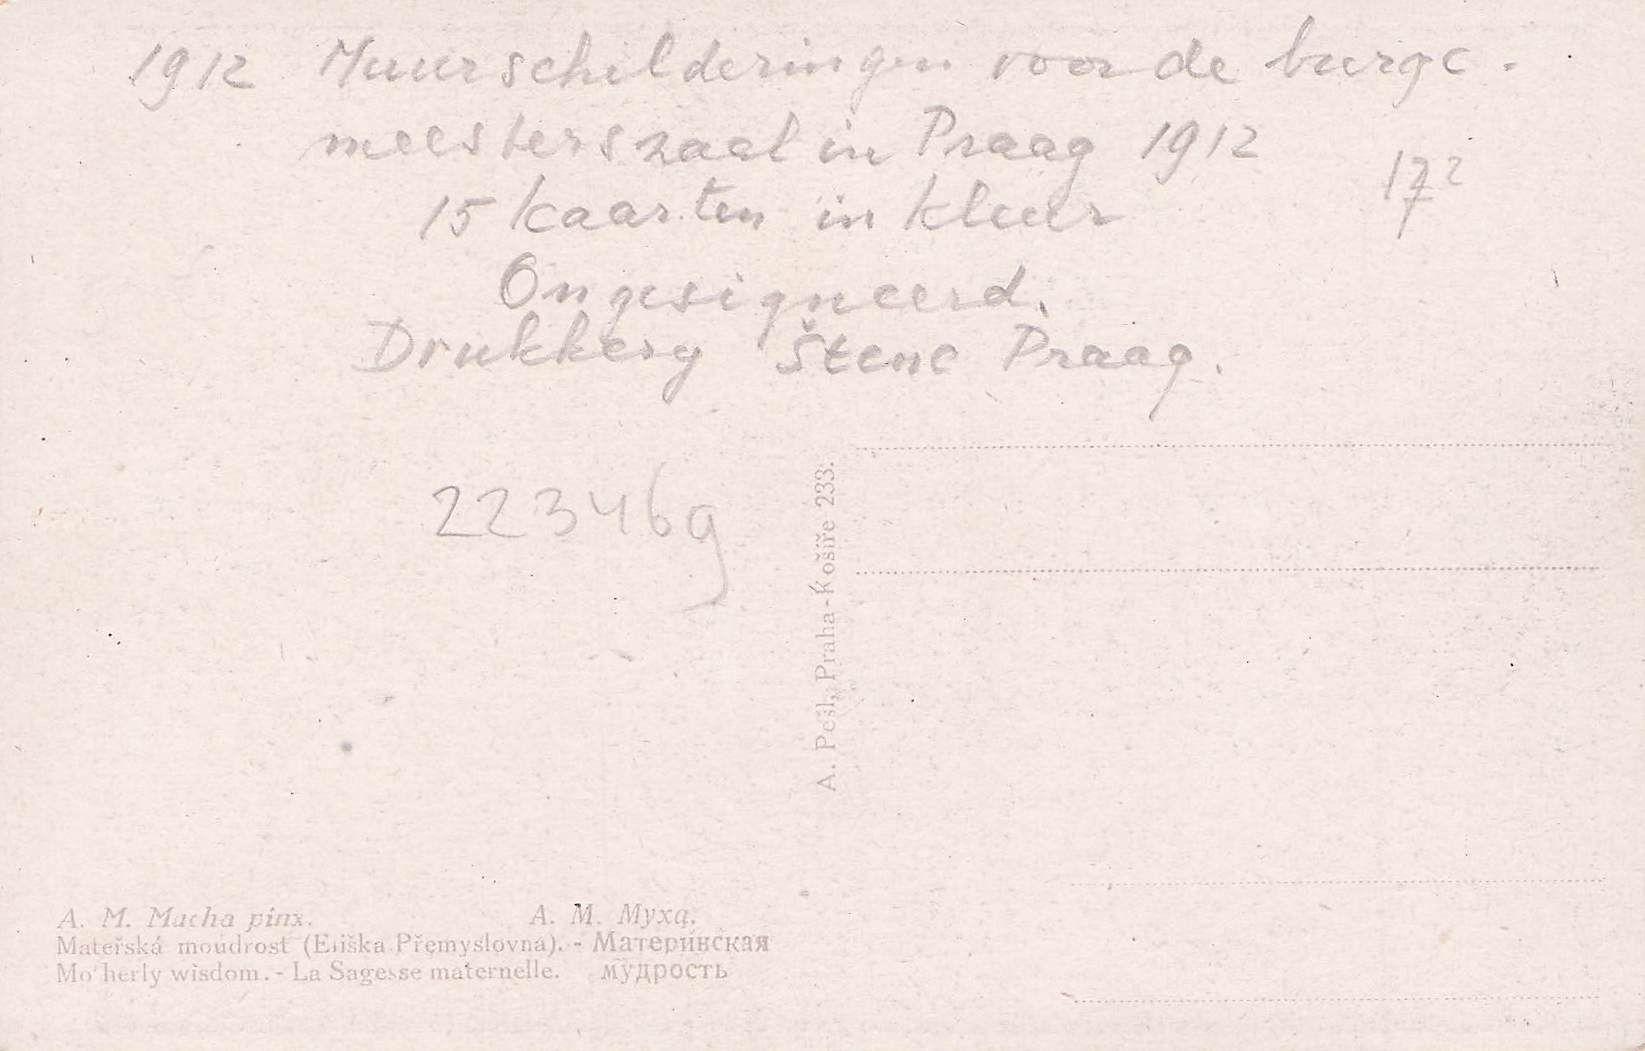 1912 Muurschilderingen voor de burge-
meesterszaal in Praag 1912
17²
15 kaarten in kleur
Ongesigneerd.
Drukkery Štenc Praag.
22346g
A. Pešl, Praha-Košíře 233.
A. M. Mucha pinx. А. М. Муха.
Mateřská moudrost (Eliška Přemyslovna). - Материнская
Mo herly wisdom. - La Sagesse maternelle. мудрость